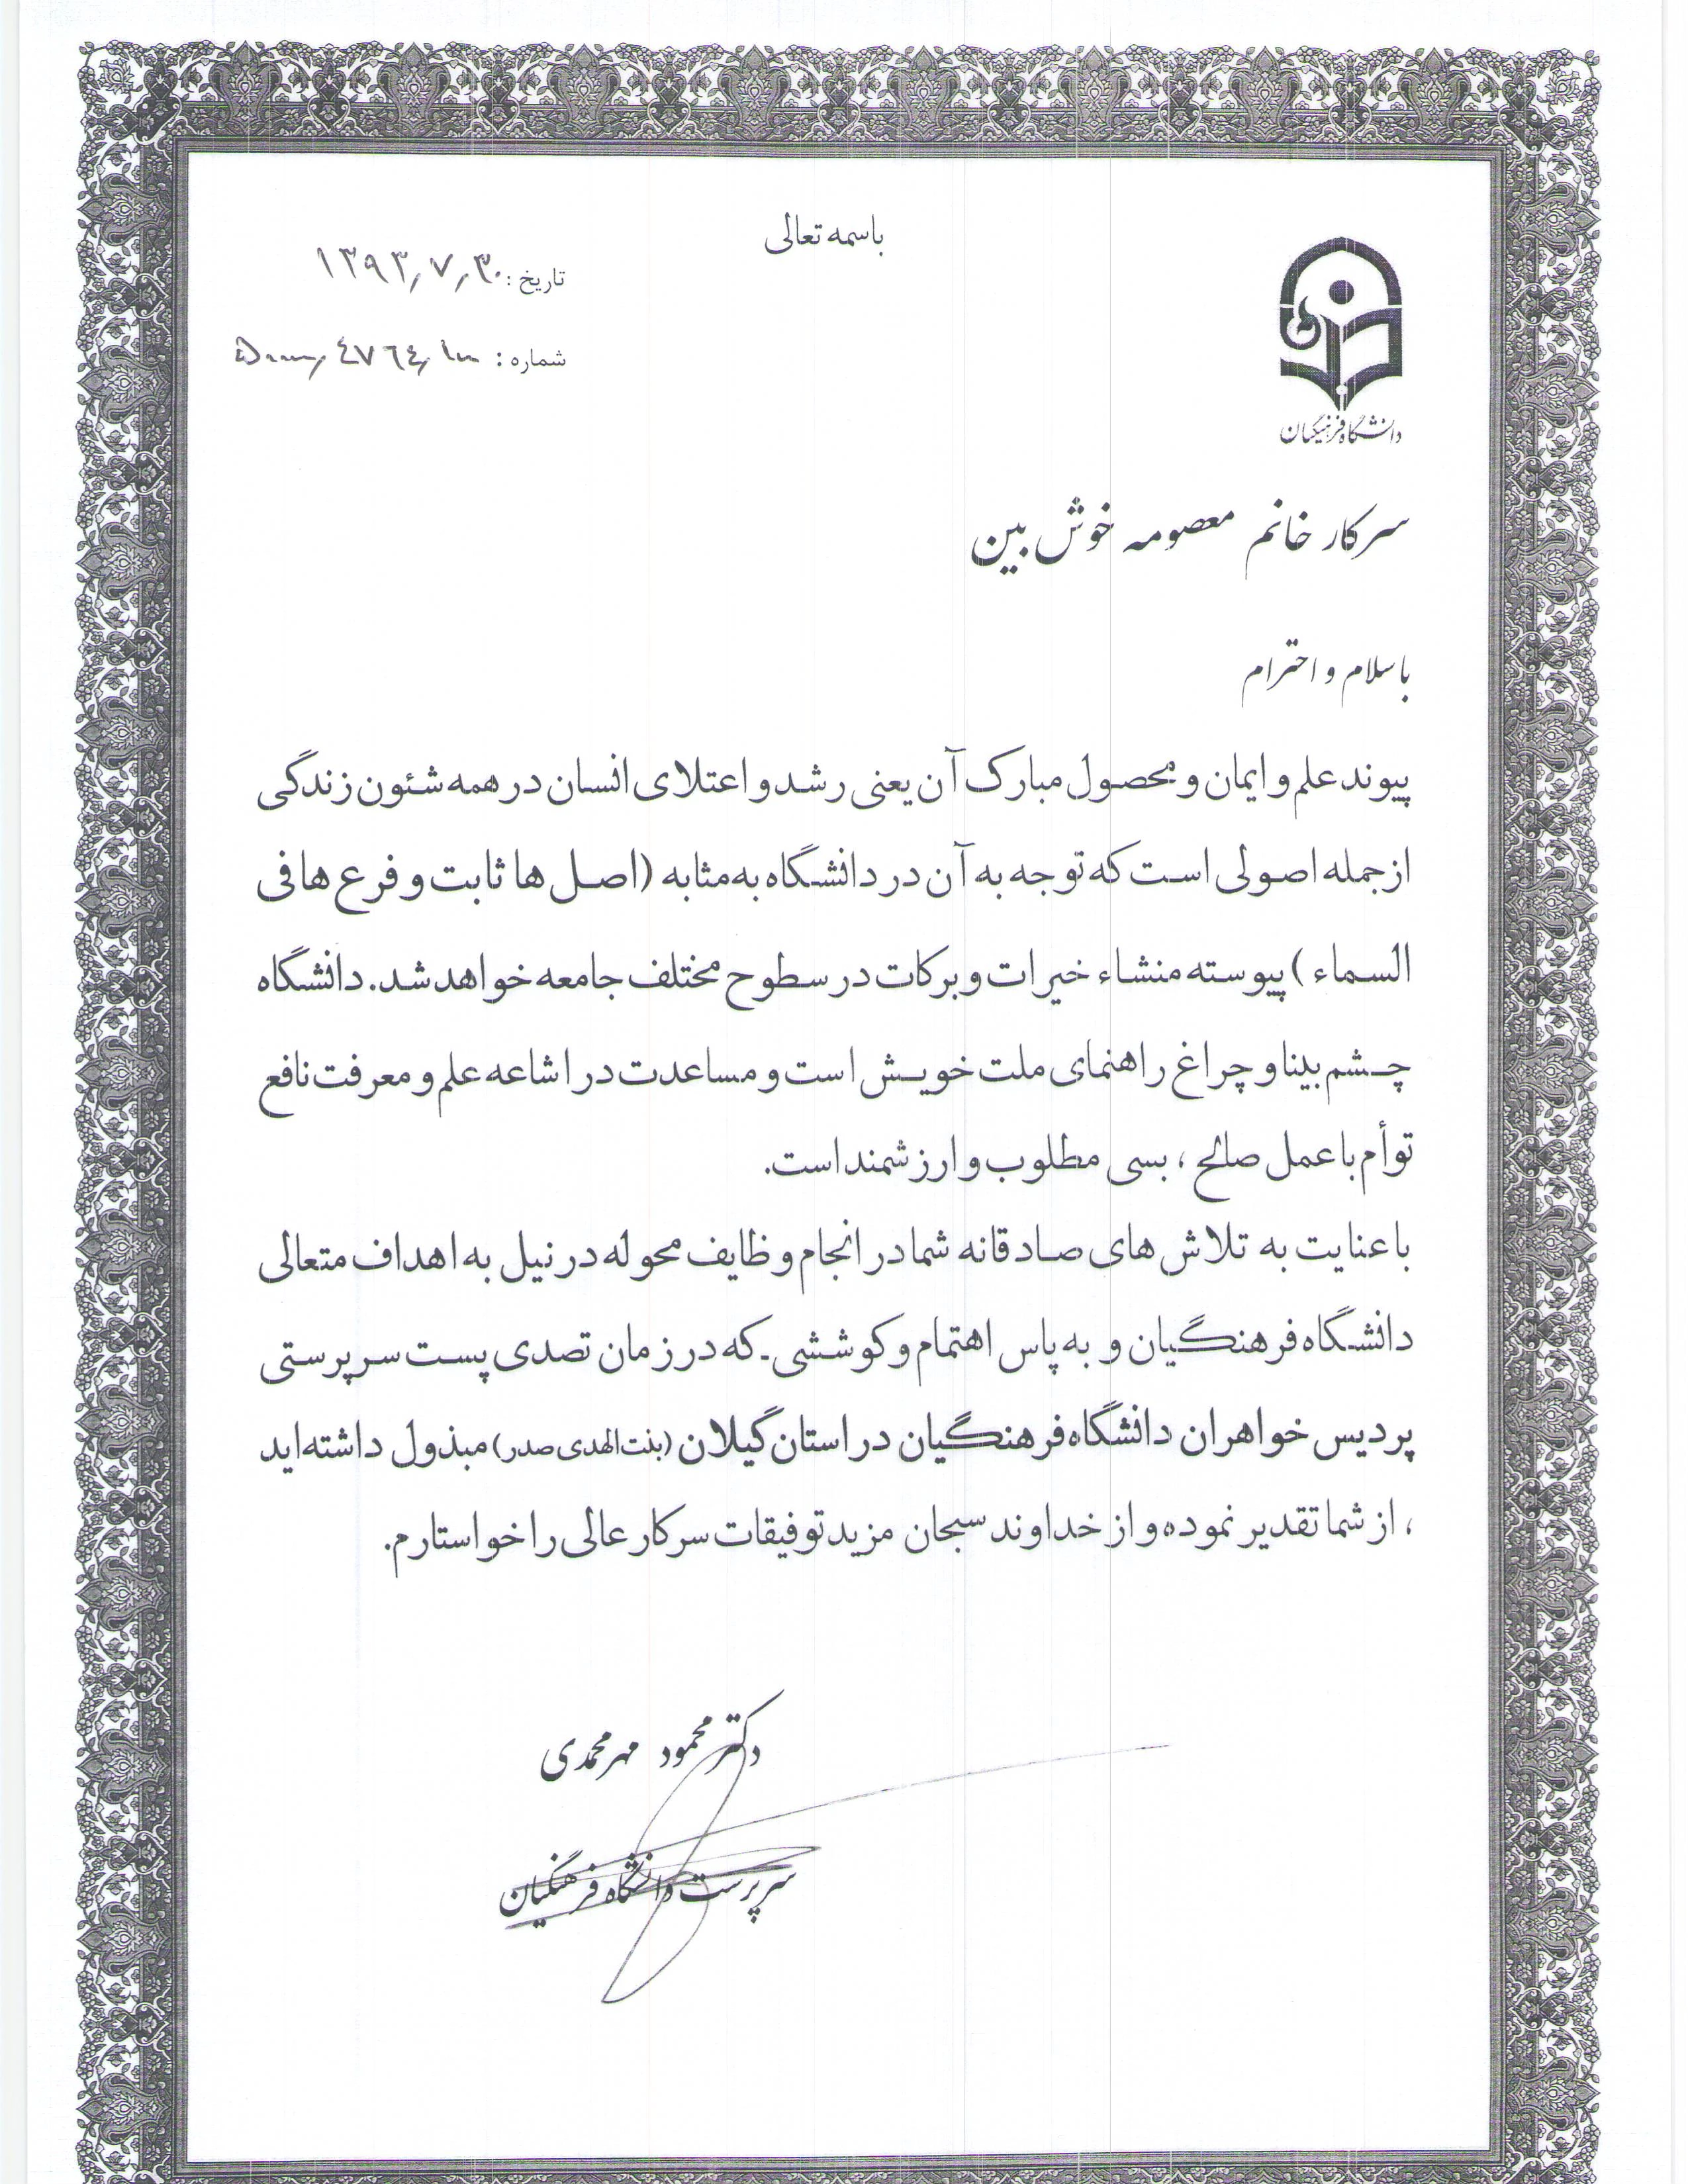 باسمه تعالی
تاریخ: ۱۳۹۳/۷/۳۰
شماره:
دانشگاه فرهنگیان
سرکار خانم معصومه خوش بین
باسلام و احترام
پیوند علم و ایمان و محصول مبارک آن یعنی رشد و اعتلای انسان در همه شئون زندگی
از جمله اصولی است که توجه به آن در دانشگاه به مثابه (اصل ها ثابت و فرع ها فی
السماء) پیوسته منشاء خیرات و برکات در سطوح مختلف جامعه خواهد شد. دانشگاه
چشم بینا و چراغ راهنمای ملت خویش است و مساعدت در اشاعه علم و معرفت نافع
توأم با عمل صالح ، بسی مطلوب و ارزشمند است.
با عنایت به تلاش های صادقانه شما در انجام وظایف محوله در نیل به اهداف متعالی
دانشگاه فرهنگیان و به پاس اهتمام و کوششی ـ که در زمان تصدی پست سرپرستی
پردیس خواهران دانشگاه فرهنگیان در استان گیلان (بنت الهدی صدر) مبذول داشته اید
، از شما تقدیر نموده و از خداوند سبحان مزید توفیقات سرکار عالی را خواستارم.
دکتر محمود مهرمحمدی
سرپرست دانشگاه فرهنگیان